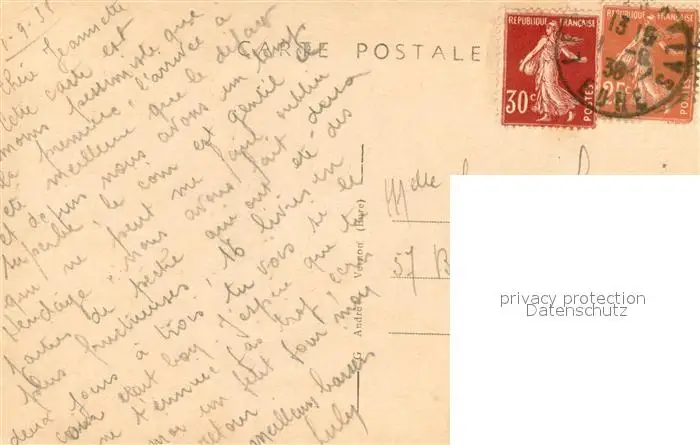 1-9-38
Chère Jeannette
Cette carte est
moins pestimiste que
la première, l'arrivée a
été meilleure que le départ
et depuis nous avons un temps
superbe le coin est gentil
qui ne peut me fait oublier
Vendange nous avons fait deux
parties de pêche qui ont été des
plus fructueuses, 16 livres en
deux jours à trois tu vois si le
coin était bon J'espère que tu
ne t'ennuie pas trop, écris
moi un petit pour moi
retour
meilleurs baisers
CARTE POSTALE
G. André Vernon (Eure)
REPUBLIQUE FRANÇAISE
30c
POSTES
REPUBLIQUE FRANÇAISE
25c
POSTES
EURE
Melle
57
privacy protection
Datenschutz